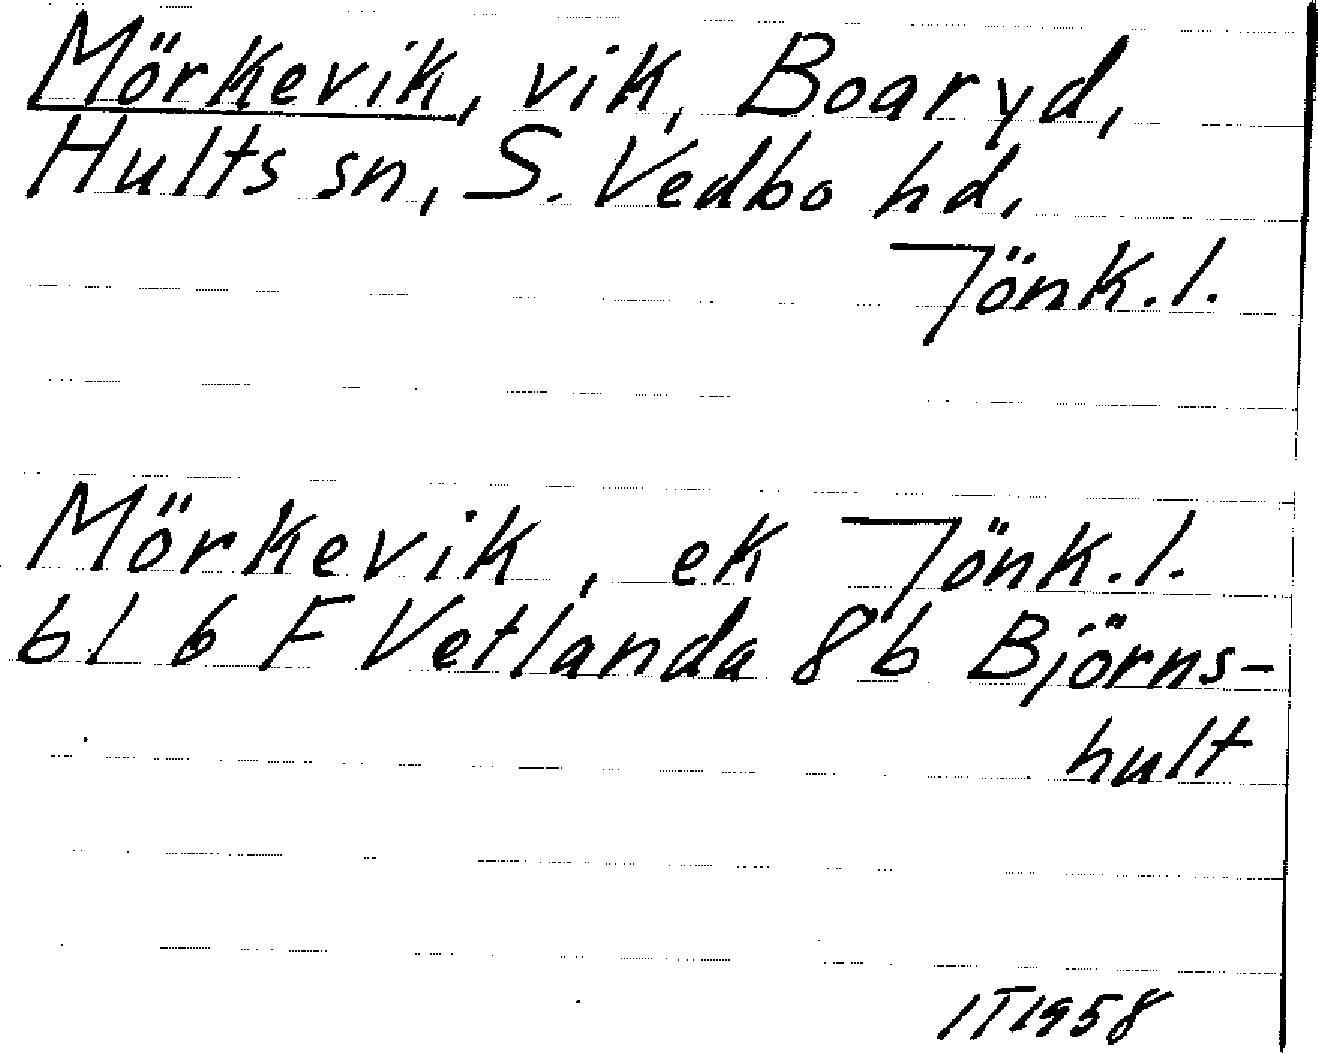 Mörkevik, vik, Boaryd,
Hults sn, S. Vedbo hd,
Jönk.l.
Mörkevik, ek Jönk.l.
bl 6 F Vetlanda 8b Björns-
hult
IT1958